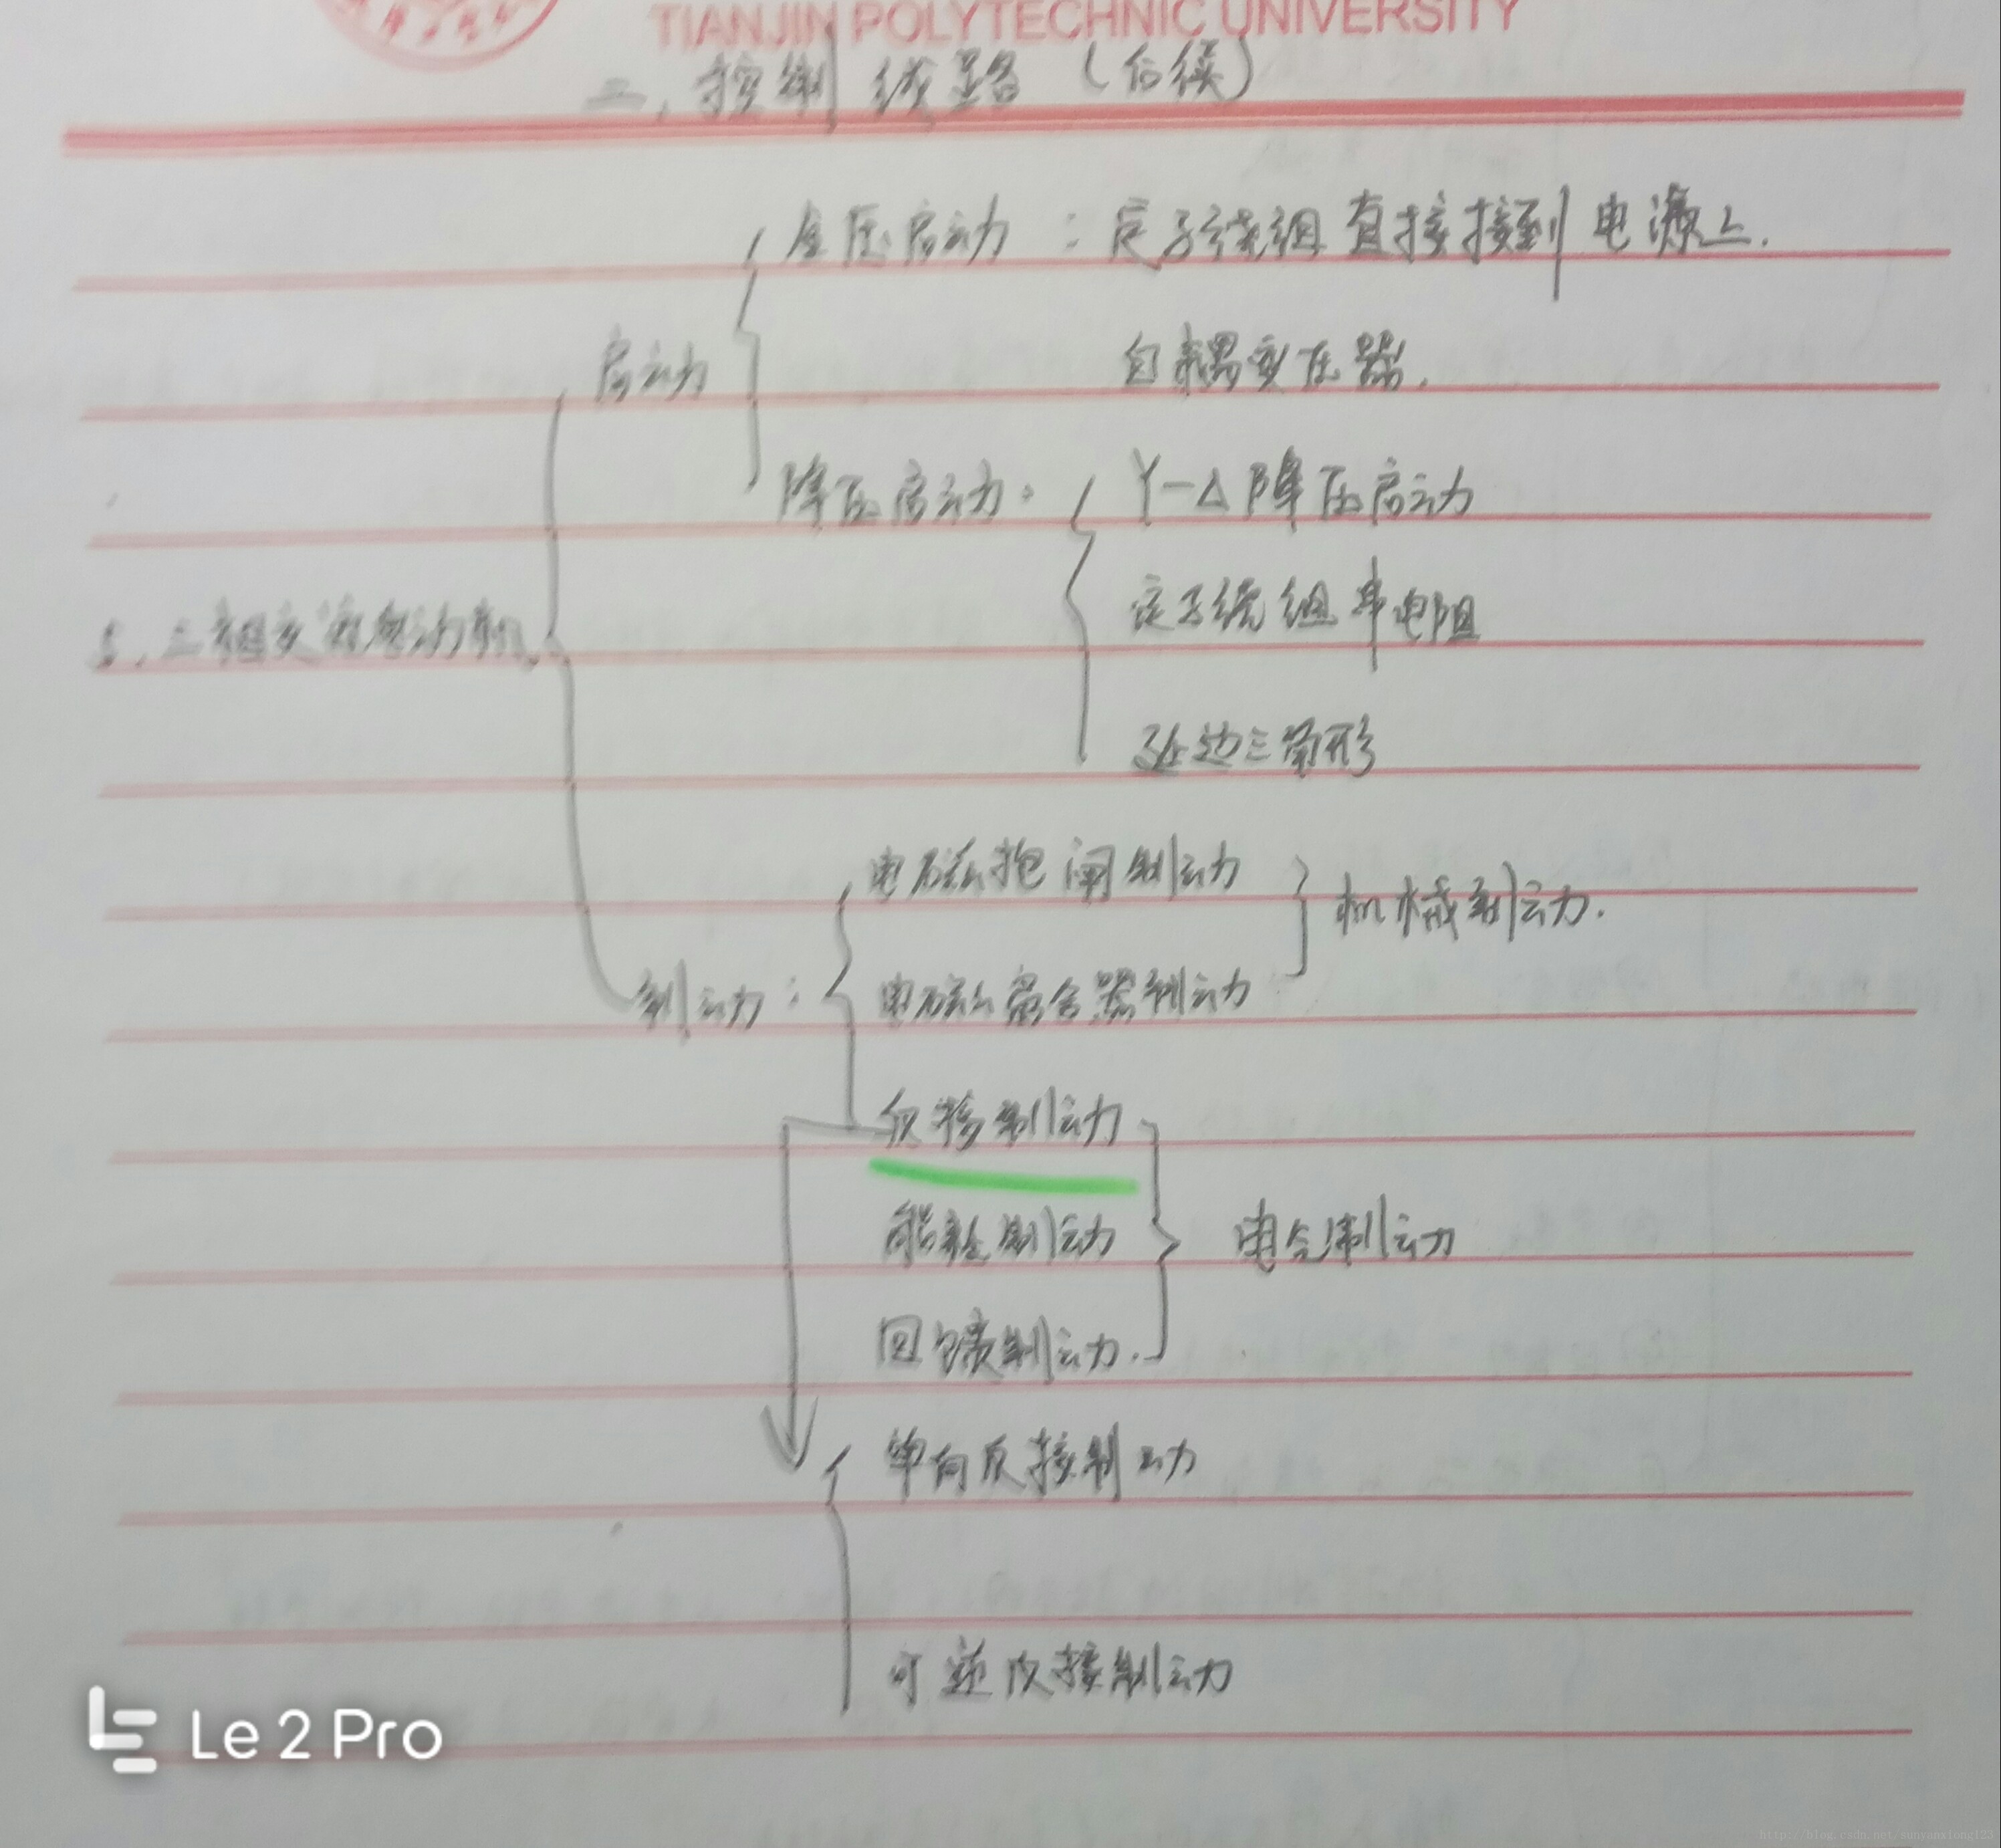 TIANJIN POLYTECHNIC UNIVERSITY
二、控制线路（后续）
全压启动：定子绕组直接接到电源上.
启动
自耦变压器.
降压启动：
Y-Δ降压启动
定子绕组串电阻
5、三相交流电动机.
延边三角形
电磁抱闸制动
机械制动.
制动：
电磁离合器制动
反接制动
能耗制动
电气制动
回馈制动.
单向反接制动
可逆反接制动
Le 2 Pro
http://blog.csdn.net/sunyanxiong123